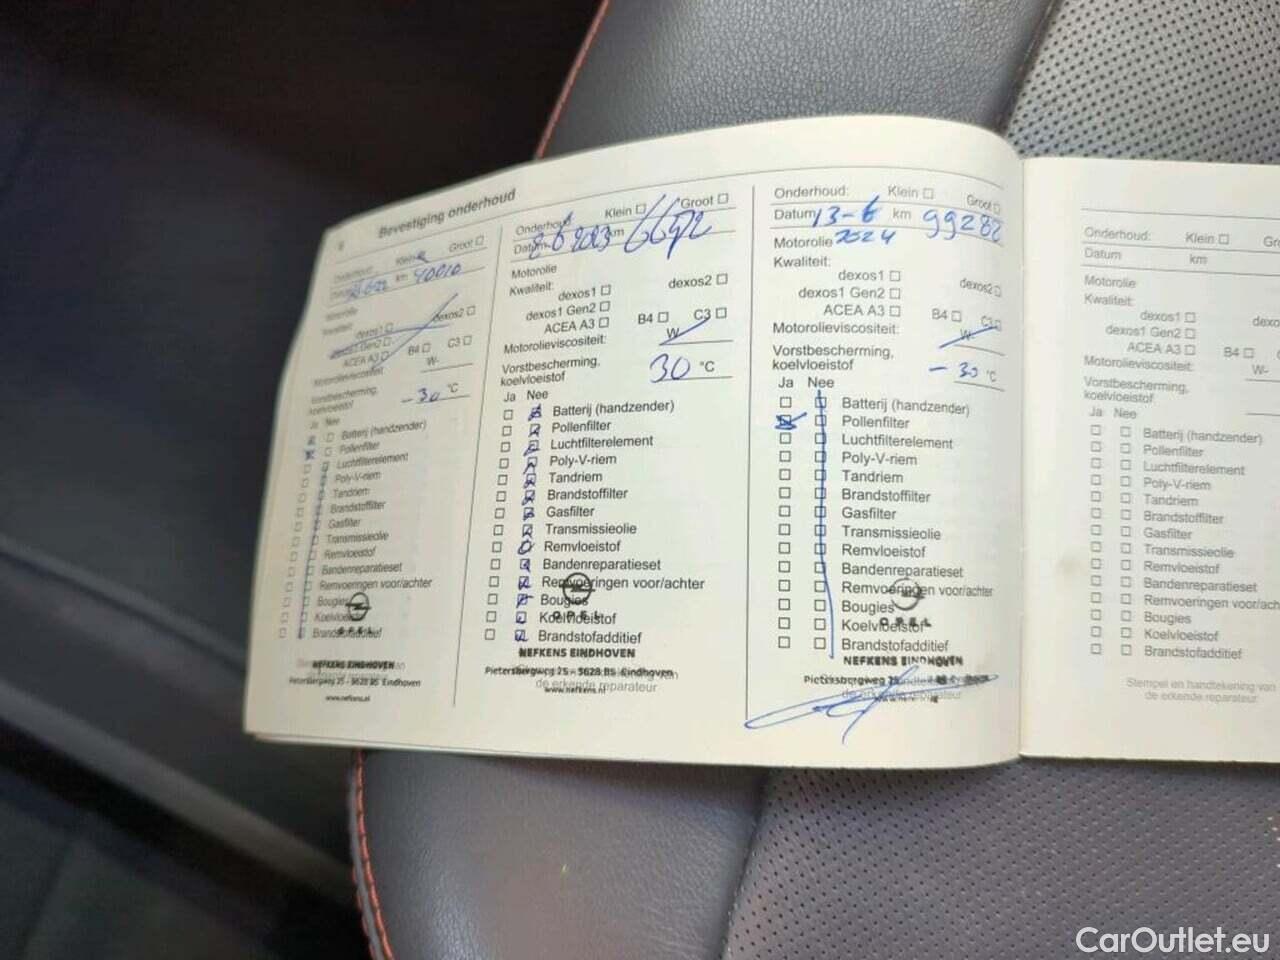 8
Bevestiging onderhoud
Onderhoud: Klein Groot
Datum km 40010
Motorolie
Kwaliteit:
dexos1 dexos2
dexos1 Gen2
ACEA A3 B4 C3
Motorolieviscositeit: W-
Vorstbescherming,
koelvloeistof -30 °C
Ja Nee
Batterij (handzender)
Pollenfilter
Luchtfilterelement
Poly-V-riem
Tandriem
Brandstoffilter
Gasfilter
Transmissieolie
Remvloeistof
Bandenreparatieset
Remvoeringen voor/achter
Bougies
Koelvloeistof
Brandstofadditief
OPEL
NEFKENS EINDHOVEN
Pietersbergweg 25 - 5628 BS Eindhoven
www.nefkens.nl
Onderhoud Klein Groot
Datum 2023 km
Motorolie
Kwaliteit:
dexos1 dexos2
dexos1 Gen2
ACEA A3 B4 C3
Motorolieviscositeit: W-
Vorstbescherming,
koelvloeistof 30 °C
Ja Nee
Batterij (handzender)
Pollenfilter
Luchtfilterelement
Poly-V-riem
Tandriem
Brandstoffilter
Gasfilter
Transmissieolie
Remvloeistof
Bandenreparatieset
Remvoeringen voor/achter
Bougies
Koelvloeistof
Brandstofadditief
OPEL
NEFKENS EINDHOVEN
Pietersbergweg 25 - 5628 BS Eindhoven
de erkende reparateur
www.nefkens.nl
Onderhoud: Klein Groot
Datum 13-6 km 99282
Motorolie 2024
Kwaliteit:
dexos1 dexos2
dexos1 Gen2
ACEA A3 B4 C3
Motorolieviscositeit: W-
Vorstbescherming,
koelvloeistof -30 °C
Ja Nee
Batterij (handzender)
Pollenfilter
Luchtfilterelement
Poly-V-riem
Tandriem
Brandstoffilter
Gasfilter
Transmissieolie
Remvloeistof
Bandenreparatieset
Remvoeringen voor/achter
Bougies
Koelvloeistof
Brandstofadditief
OPEL
NEFKENS EINDHOVEN
Pietersbergweg 25
de erkende reparateur
Onderhoud: Klein
Datum km
Motorolie
Kwaliteit:
dexos1
dexos1 Gen2
ACEA A3 B4
Motorolieviscositeit: W-
Vorstbescherming,
koelvloeistof
Ja Nee
Batterij (handzender)
Pollenfilter
Luchtfilterelement
Poly-V-riem
Tandriem
Brandstoffilter
Gasfilter
Transmissieolie
Remvloeistof
Bandenreparatieset
Remvoeringen voor/ach
Bougies
Koelvloeistof
Brandstofadditief
Stempel en handtekening van
de erkende reparateur
CarOutlet.eu